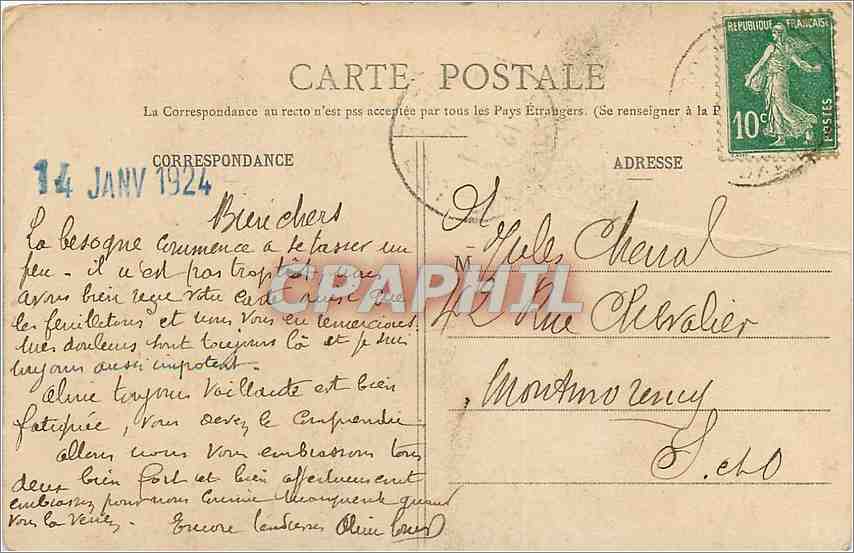 REPUBLIQUE FRANÇAISE
10c
POSTES
CARTE POSTALE
La Correspondance au recto n'est pss acceptée par tous les Pays Étrangers. (Se renseigner à la P
CORRESPONDANCE
14 JANV 1924
Bien chers
La besogne commence a se tasser un
peu - il n'est pas trop tôt. nous
avons bien reçu votre carte ainsi que
les feuilletons et nous vous en remercions.
Mes douleurs sont toujours là et je suis
toujours aussi impotent.
Aline toujours vaillante est bien
fatiguée, vous devez le comprendre
allons nous vous embrassons tous
deux bien fort et bien affectueusement
embrassez pour nous quand
vous la verrez. Encore tendresses Aline
ADRESSE
M
M Jules
42 Rue Chevalier
Montmorency
S. et O
CPAPHIL